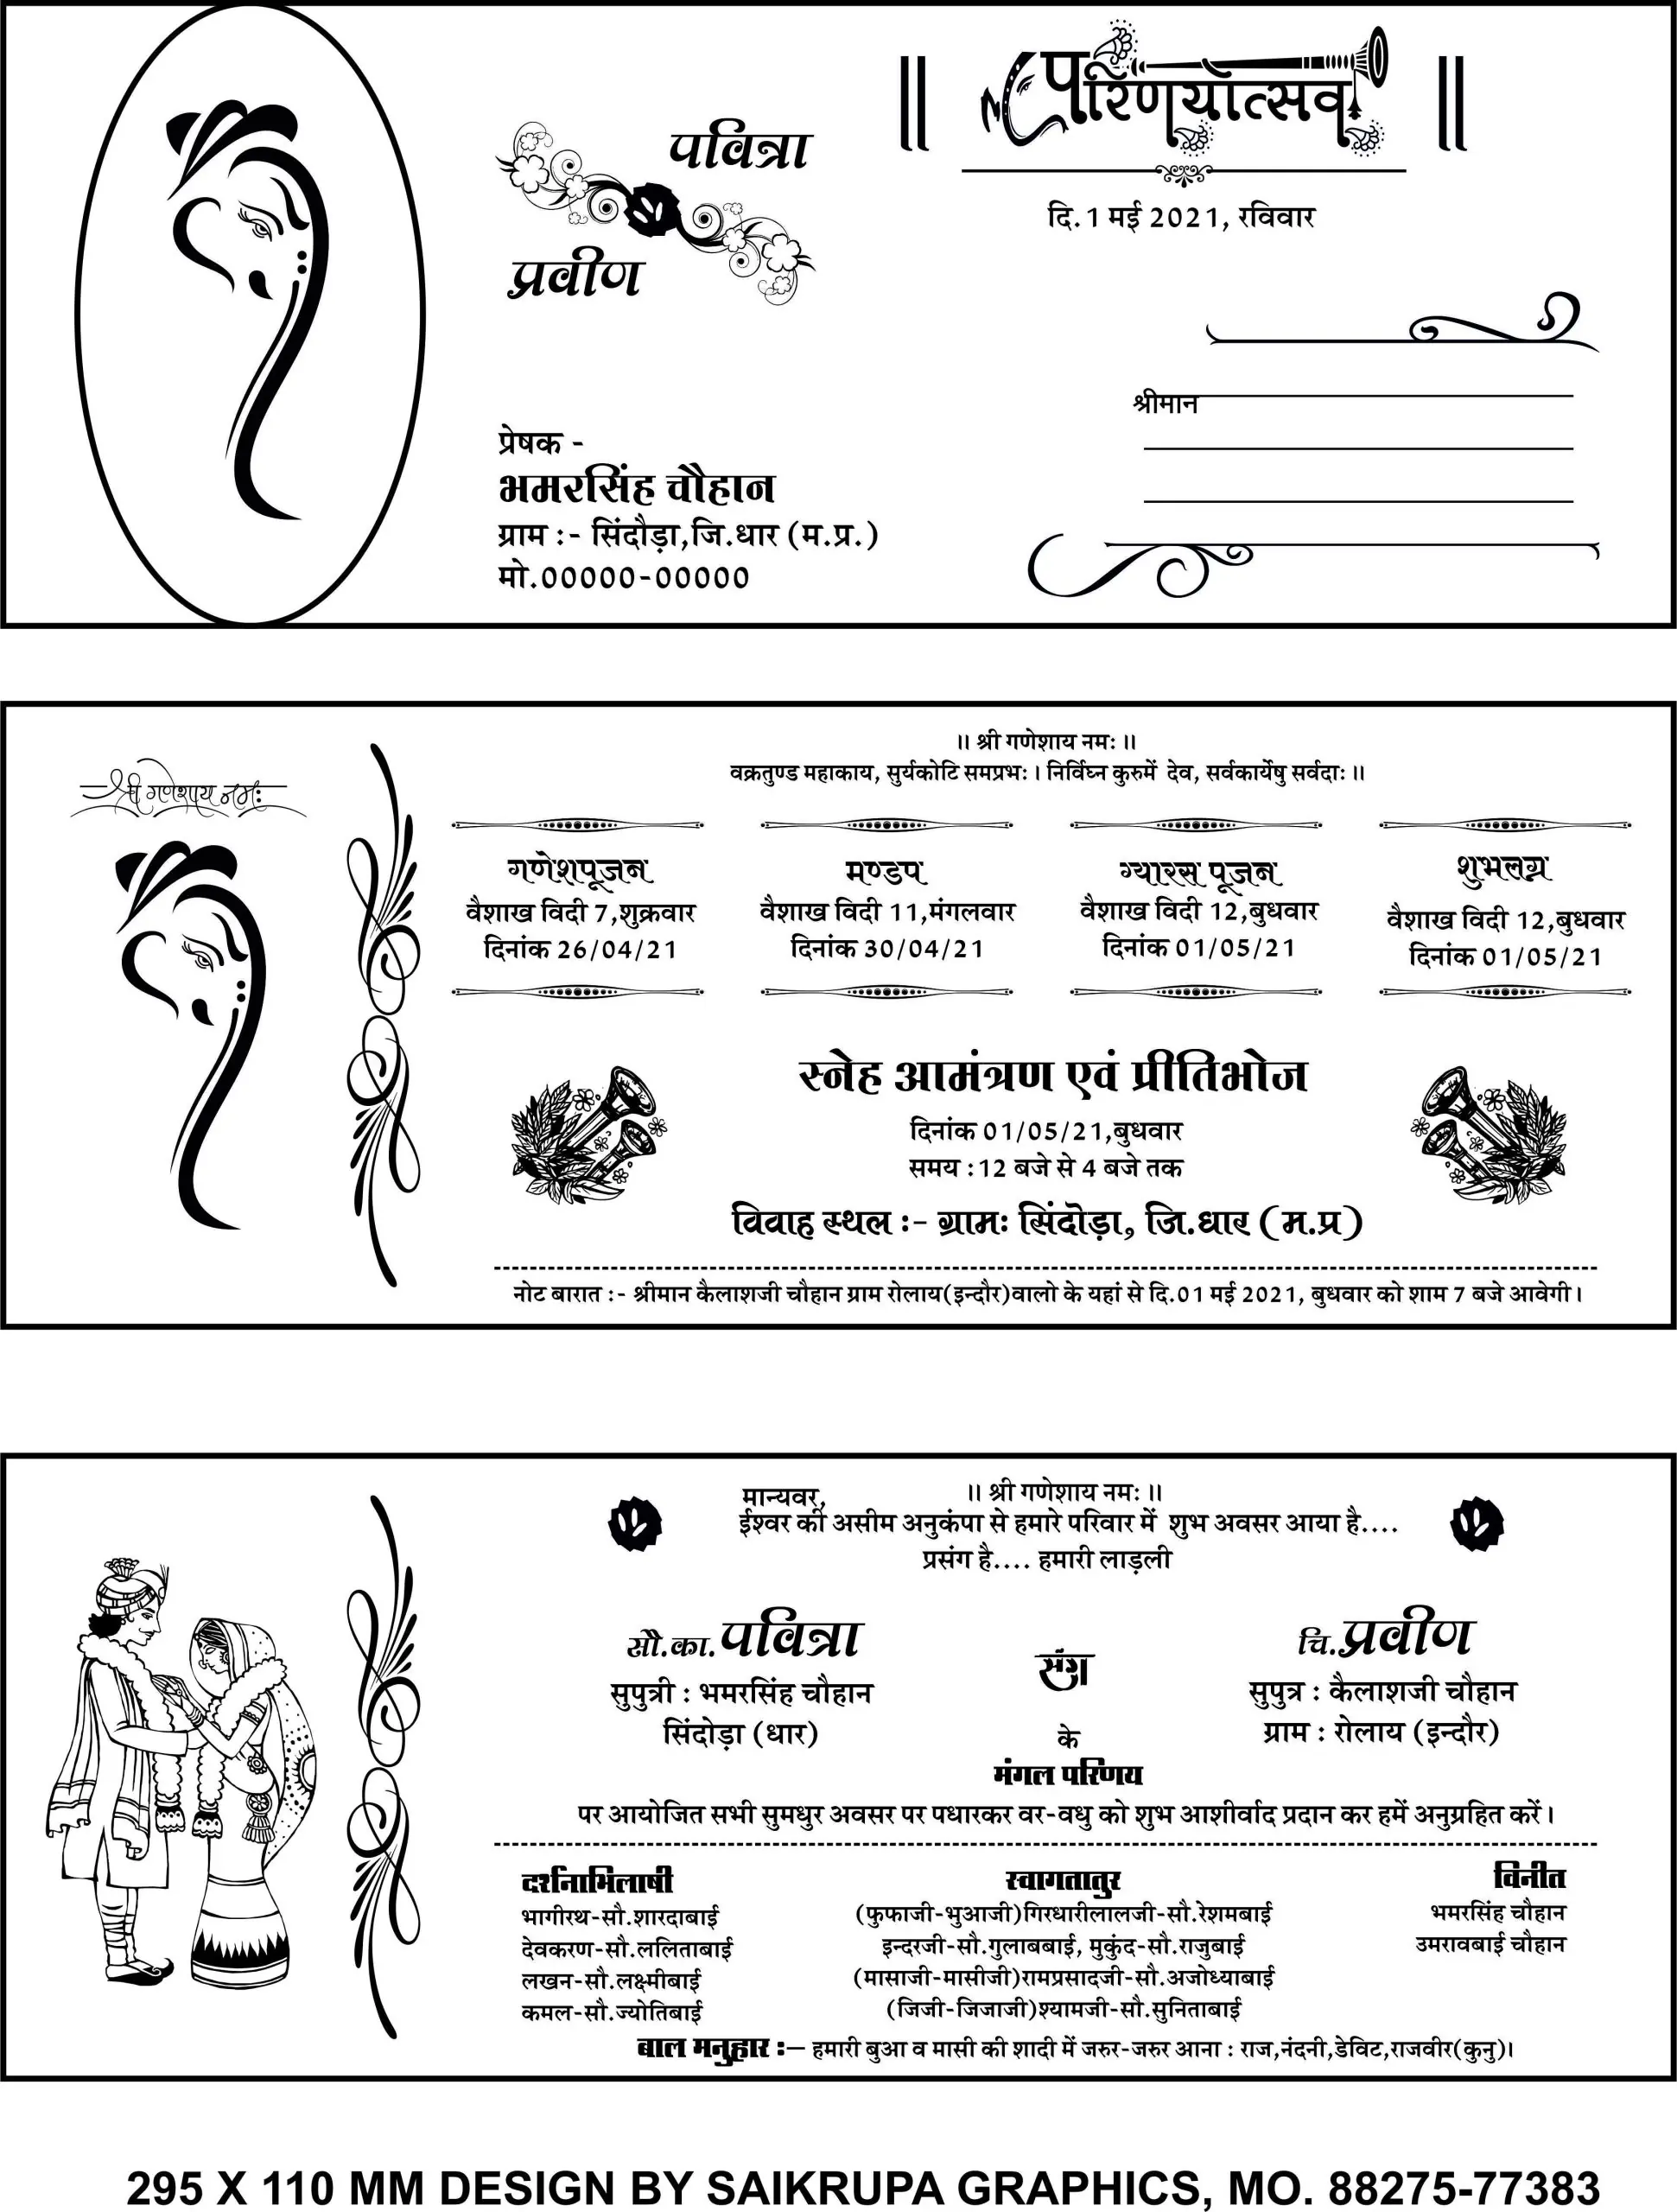 पवित्रा
प्रवीण
॥ परिणयोत्सव ॥
दि.1 मई 2021, रविवार
श्रीमान
प्रेषक -
भमरसिंह चौहान
ग्राम :- सिंदौड़ा,जि.धार (म.प्र.)
मो.00000-00000
श्री गणेशाय नमः
॥ श्री गणेशाय नमः ॥
वक्रतुण्ड महाकाय, सुर्यकोटि समप्रभः। निर्विघ्न कुरुमें देव, सर्वकार्येषु सर्वदाः॥
गणेशपूजन
वैशाख विदी 7,शुक्रवार
दिनांक 26/04/21
मण्डप
वैशाख विदी 11,मंगलवार
दिनांक 30/04/21
ग्यारस पूजन
वैशाख विदी 12,बुधवार
दिनांक 01/05/21
शुभलग्र
वैशाख विदी 12,बुधवार
दिनांक 01/05/21
स्नेह आमंत्रण एवं प्रीतिभोज
दिनांक 01/05/21,बुधवार
समय :12 बजे से 4 बजे तक
विवाह स्थल :- ग्रामः सिंदोड़ा, जि.धार (म.प्र)
नोट बारात :- श्रीमान कैलाशजी चौहान ग्राम रोलाय(इन्दौर)वालो के यहां से दि.01 मई 2021, बुधवार को शाम 7 बजे आवेगी।
॥ श्री गणेशाय नमः ॥
मान्यवर,
ईश्वर की असीम अनुकंपा से हमारे परिवार में शुभ अवसर आया है....
प्रसंग है.... हमारी लाड़ली
सौ.का.पवित्रा
सुपुत्री : भमरसिंह चौहान
सिंदोड़ा (धार)
संग
चि.प्रवीण
सुपुत्र : कैलाशजी चौहान
ग्राम : रोलाय (इन्दौर)
के
मंगल परिणय
पर आयोजित सभी सुमधुर अवसर पर पधारकर वर-वधु को शुभ आशीर्वाद प्रदान कर हमें अनुग्रहित करें।
दर्शनाभिलाषी
भागीरथ-सौ.शारदाबाई
देवकरण-सौ.ललिताबाई
लखन-सौ.लक्ष्मीबाई
कमल-सौ.ज्योतिबाई
स्वागतातुर
(फुफाजी-भुआजी)गिरधारीलालजी-सौ.रेशमबाई
इन्दरजी-सौ.गुलाबबाई, मुकुंद-सौ.राजुबाई
(मासाजी-मासीजी)रामप्रसादजी-सौ.अजोध्याबाई
(जिजी-जिजाजी)श्यामजी-सौ.सुनिताबाई
विनीत
भमरसिंह चौहान
उमरावबाई चौहान
बाल मनुहार :– हमारी बुआ व मासी की शादी में जरुर-जरुर आना : राज,नंदनी,डेविट,राजवीर(कुनु)।
295 X 110 MM DESIGN BY SAIKRUPA GRAPHICS, MO. 88275-77383